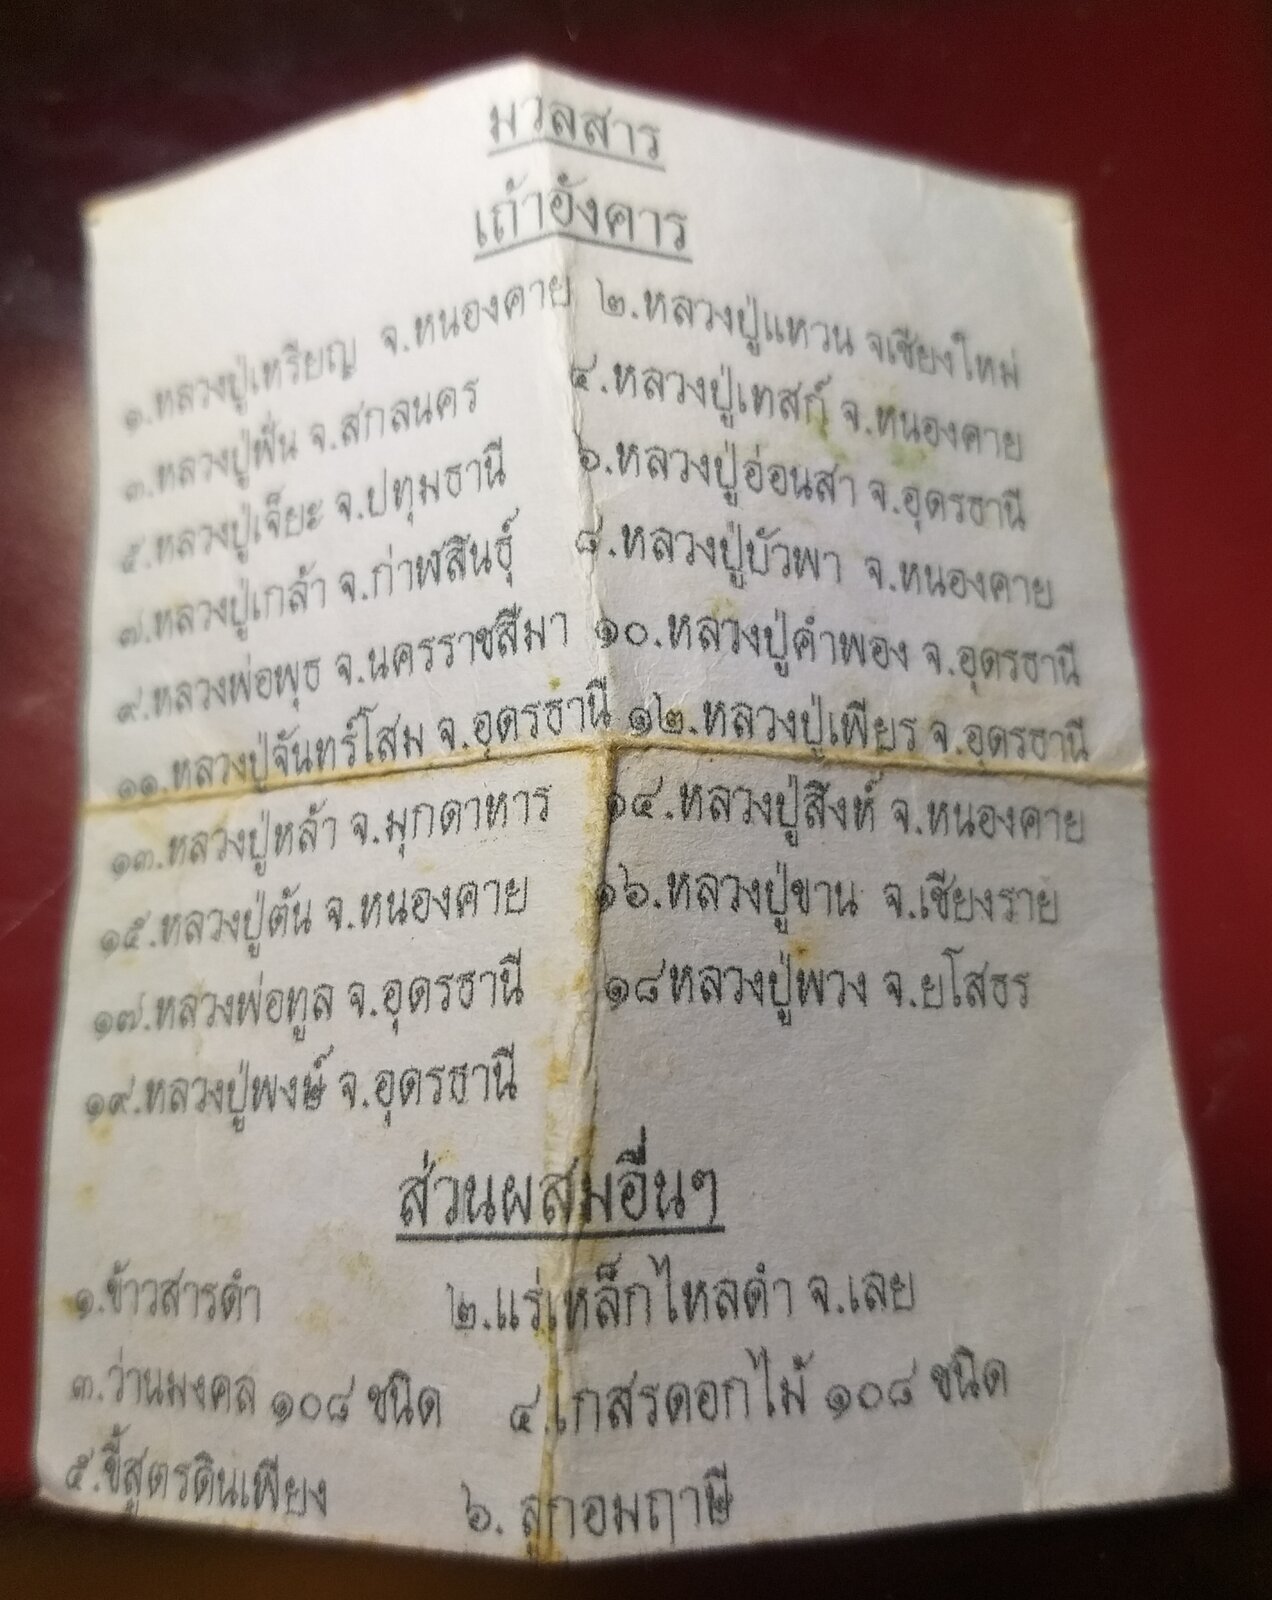 มวลสาร
เถ้าอังคาร
๑.หลวงปู่เหรียญ จ.หนองคาย ๒.หลวงปู่แหวน จเชียงใหม่
๓.หลวงปู่ฝั้น จ.สกลนคร ๔.หลวงปู่เทสก์ จ.หนองคาย
๕.หลวงปู่เจี๊ยะ จ.ปทุมธานี ๖.หลวงปู่อ่อนสา จ.อุดรธานี
๗.หลวงปู่เกล้า จ.ก่าฬสินธุ์ ๘.หลวงปู่บัวพา จ.หนองคาย
๙.หลวงพ่อพุธ จ.นครราชสีมา ๑๐.หลวงปู่คำพอง จ.อุดรธานี
๑๑.หลวงปู่จันทร์โสม จ.อุดรธานี ๑๒.หลวงปู่เพียร จ.อุดรธานี
๑๓.หลวงปู่หล้า จ.มุกดาหาร ๑๔.หลวงปู่สิงห์ จ.หนองคาย
๑๕.หลวงปู่ต้น จ.หนองคาย ๑๖.หลวงปู่ขาน จ.เชียงราย
๑๗.หลวงพ่อทูล จ.อุดรธานี ๑๘หลวงปู่พวง จ.ยโสธร
๑๙.หลวงปู่พงษ์ จ.อุดรธานี
ส่วนผสมอื่นๆ
๑.ข้าวสารดำ ๒.แร่เหล็กไหลดำ จ.เลย
๓.ว่านมงคล ๑๐๘ ชนิด ๔.เกสรดอกไม้ ๑๐๘ ชนิด
๕.ขี้สูตรดินเพียง ๖. ลูกอมฤาษี